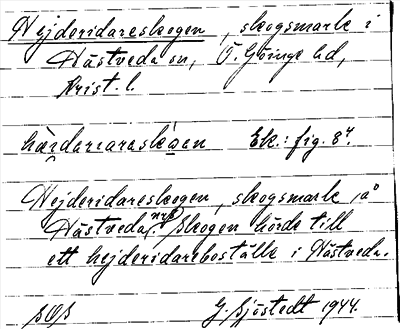 Hejderidareskogen, skogsmark i
Hästveda sn, Ö. Göinge hd,
Krist. l.
Ek.: fig. 8⁴.
Hejderidareskogen, skogsmark, å
Hästveda nr 8. Skogen hörde till
ett hejderidareboställe i Hästveda.
G. Sjöstedt 1944.